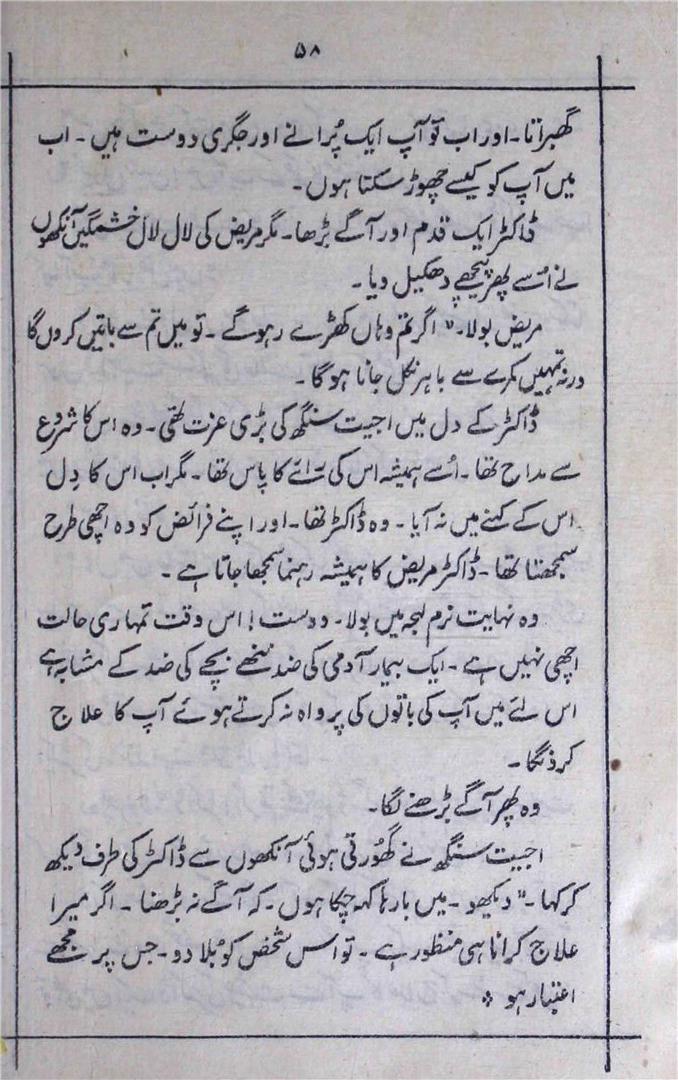 ۵۸
گھبراتا۔ اور اب تو آپ ایک پُرانے اور جگری دوست ہیں۔ اب
میں آپ کو کیسے چھوڑ سکتا ہوں۔
ڈاکٹر ایک قدم اور آگے بڑھا۔ مگر مریض کی لال لال خشمگیں آنکھوں
نے اُسے پھر پیچھے دھکیل دیا۔
مریض بولا۔ "اگر تم وہاں کھڑے رہوگے۔ تو میں تم سے باتیں کروں گا
ورنہ تمہیں کمرے سے باہر نکل جانا ہوگا۔
ڈاکٹر کے دل میں اجیت سنگھ کی بڑی عزت تھی۔ وہ اس کا شروع
سے مداح تھا۔ اُسے ہمیشہ اس کی رائے کا پاس تھا۔ مگر اب اس کا دِل
اس کے کہنے میں نہ آیا۔ وہ ڈاکٹر تھا۔ اور اپنے فرائض کو وہ اچھی طرح
سمجھتا تھا۔ ڈاکٹر مریض کا ہمیشہ رہنما سمجھا جاتا ہے۔
وہ نہایت نرم لہجہ میں بولا۔ دوست! اس وقت تمہاری حالت
اچھی نہیں ہے۔ ایک بیمار آدمی کی ضد ننھے بچے کی ضد کے مشابہ ہے
اس لئے میں آپ کی باتوں کی پرواہ نہ کرتے ہوئے آپ کا علاج
کرونگا۔
وہ پھر آگے بڑھنے لگا۔
اجیت سنگھ نے گھُورتی ہوئی آنکھوں سے ڈاکٹر کی طرف دیکھ
کر کہا۔ "دیکھو۔ میں بارہا کہہ چکا ہوں۔ کہ آگے نہ بڑھنا۔ اگر میرا
علاج کرانا ہی منظور ہے۔ تو اس شخص کو بُلا دو۔ جس پر مجھے
اعتبار ہو ⁘